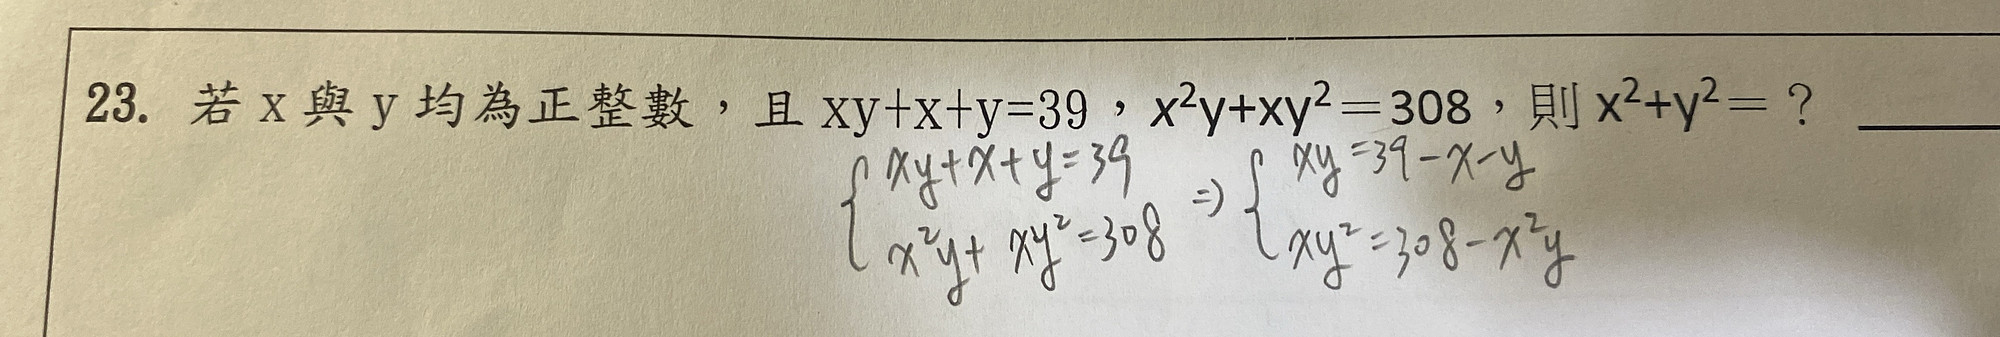 23. 若 x 與 y 均為正整數，且 xy+x+y=39，x²y+xy²=308，則 x²+y²=？ ______
{ xy+x+y=39 ⇒ { xy=39-x-y
x²y+xy²=308 xy²=308-x²y